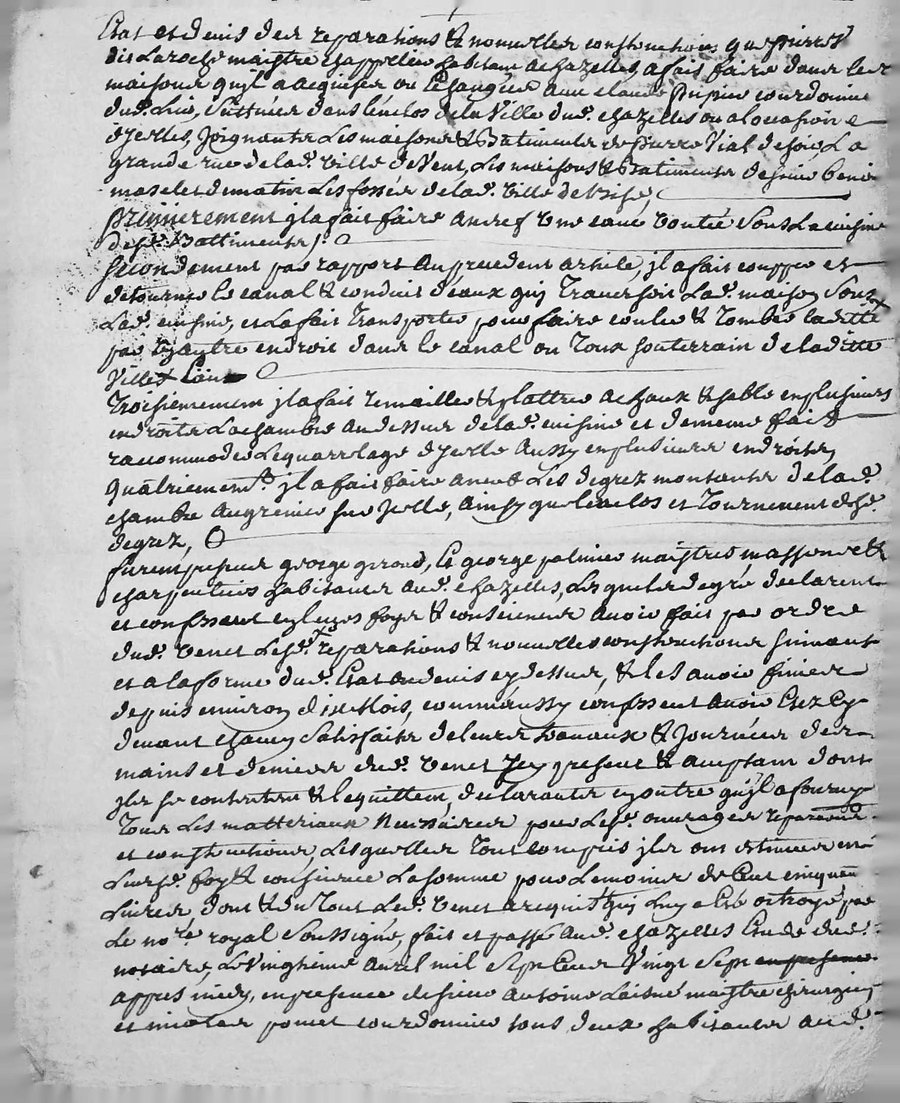 Etat et devis des reparations & nouvelles constructions que pierre
dit Laroche maistre chappellier habitant a chazelles, a fait faire dans les
maisons quyl a acquises ou Eschangées avec claude pupier courdonnier
dud. Lieu, scittuées dans l'enclos de la ville dud. chazelles ou a l'occasion
d'jcelles, Joignantes Les maisons & Batiments de pierre Vial de soir, La
grande rue de lad. ville de Vent, Les maisons & Batiments de
de matin Les fossés de lad. ville de bise,
premierement jl a fait faire Une cave voutée Sous La cuisine
desd. Battiments
Secondement par rapport au precedent article, jl a fait couppe et
detourner le canal & conduit d'eaux quy Traversoit Lad. maison Sous
Lad. cuisine, et La fait Transporter pour faire couler & Tomber laditte
par autre endroit dans le canal ou Toux souterrain de laditte
Ville
Troisiemement jl a fait remailler & plattrer a chaux & sable en plusieurs
endroits La chambre au dessus de lad. cuisine et de meme fait
raccommoder Le quarrelage d'jcelle Aussy en plusieurs endroits,
quatriement. jl a fait faire a neuf Les degrez montants de la d.
chambre au grenier sur jcelle, Ainsy que l'enclos et Tournement desd.
degrez,
furent presents george giroud, Et george palmier maistres massons &
charpentiers habitants aud. chazelles, Lesquels de gré declarent
et confessent en leurs foyes & consiences avoir fait par ordre
dud. Venet Lesd. reparations & nouvelles constructions suivant
et a la forme dud. Etat ou devis cy dessus, & les avoir finies
depuis environ dix mois, comm'aussy confessent avoir Estez cy
devant chacun Satisfaits de leurs travaux & journées des
mains et deniers dud. Venet Jcy present & acceptant dont
jls se contentent & le quittent, declarants en outre qu'jl a fourny
Tous Les matteriaux necessaires pour Lesd. ouvrages reparations
et constructions, Lesquelles Tout compris jls ont estimées en
Leursd. foy & consience La somme pour Le moins de Cent cinquante
Livres, dont & du Tout Led. Venet a requis acte quy Luy a Eté octroyé par
Le nore. royal Soussigné, fait et passé aud. chazelles Etude dud.
notaire, Le vingtieme avril mil Sept Cent Vingt Sept en presence
appres midy, en presence de sieur Antoine Laisné maistre chirurgien
et nicolas pomet courdonnier tous deux habitants aud.